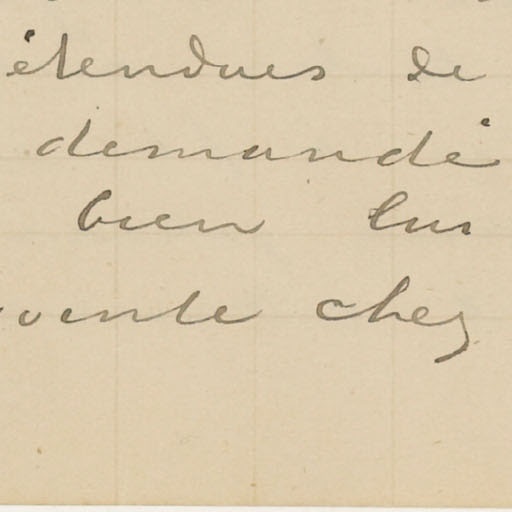 étendues de
demandé
bien lui
vente chez